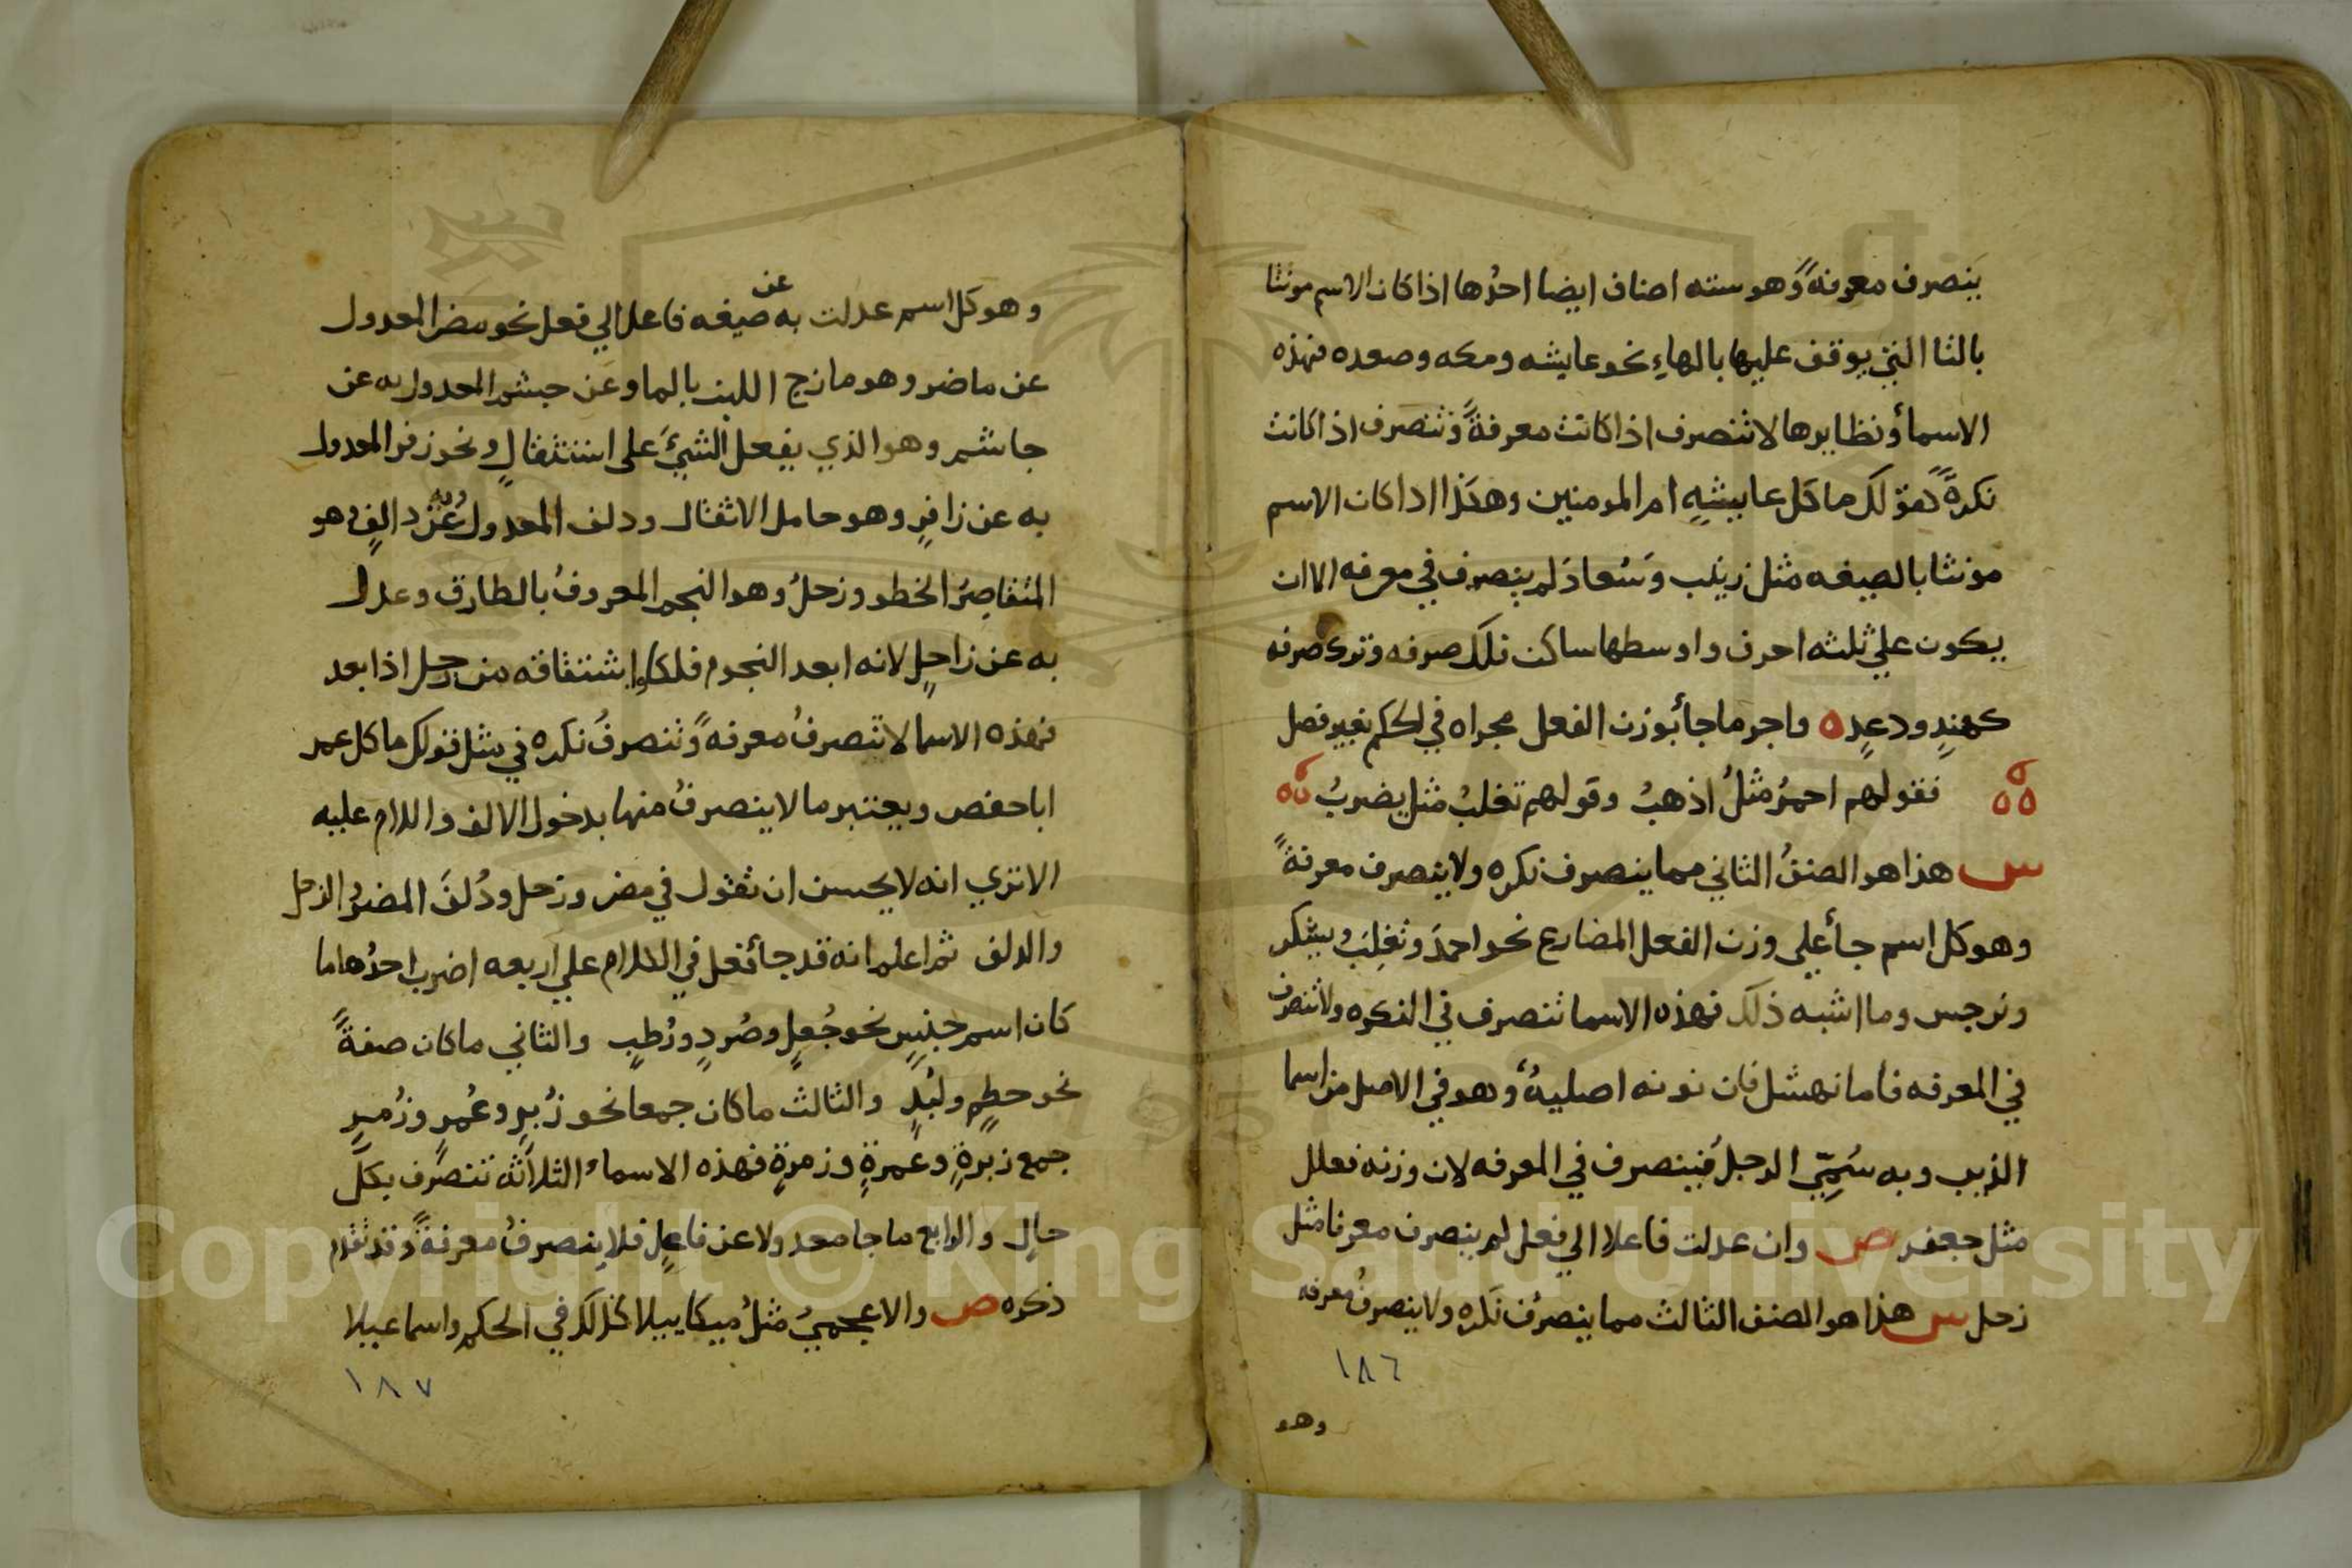 ينصرف معرفةً وهو سته اصناف ايضا احدُها اذا كان الاسم مونثا
بالتا التي يوقف عليها بالهاءِ نحو عايشه ومكه وصعده فهذه
الاسمأ ونظايرها لا تنصرف اذا كانت معرفةً وتنصرف اذا كانت
نكرةً كقولك ما كل عاييشهٍ ام المومنين وهكذا اذا كان الاسم
مونثا بالصيغه مثل زينب وَسُعادَ لم ينصرف في معرفه الا ان
يكون علي ثلثه احرف واوسطها ساكن فلك صرفه وترك صرفه
كهندٍ ودعدٍ ه واجر ما جأ بوزن الفعل مجراه في الحكم بغير فصل
فقولهم احمدُ مثلُ اذهبُ وقولهم تغلبُ مثل يضربُ
س هذا هو الصنفُ الثاني مما ينصرف نكره ولا ينصرف معرفةً
وهو كل اسم جأ علي وزن الفعل المضارع نحو احمدَ وتغلِبَ ويشكر
ونرجس وما اشبه ذلك فهذه الاسما تنصرف في النكره ولا تنصرف
في المعرفه فاما نهشل فان نونه اصليهٌ وهو في الاصل من اسما
الذيب وبه سُمِّيَ الرجلُ فينصرف في المعرفه لان وزنه فعلل
مثل جعفر ص وان عدلت فاعلا الي فعل لم ينصرف معرفا مثل
زحل س هذا هو الصنف الثالث مما ينصرف نكره ولا ينصرفُ معرفه
١٨٦
وهو
وهو كل اسم عدلت به عن صيغه فاعل الي فعل نحو مضر المعدول
عن ماضر وهو مازج اللبن بالما وعن جشم المعدول به عن
جاشم وهو الذي يفعل الشيَّ على استثقالٍ ونحو زفر المعدول
به عن زافرٍ وهو حامل الاثقال ودلف المعدول به عن دالفٍ وهو
المتقاصِرُ الخطو وزحلُ وهو النجم المعروفُ بالطارق وعدل
به عن زاحلٍ لانه ابعد النجوم فلكا واشتقاقه من زحل اذا بعد
فهذه الاسما لا تنصرفُ معرفهً وتنصرفُ نكره في مثل قولك ما كل عمر
ابا حفص ويعتبر ما لا ينصرفُ منها بدخول الالف واللام عليه
الا تري انه لا يحسن ان تقول في مضر وزحل ودُلفَ المضرُ والزحل
والدلف ثم اعلم انه قد جأ فعل في الكلام علي اربعه اضرب احدُها ما
كان اسم جنسٍ نحو جُعلٍ وصُردٍ ورُطبٍ والثاني ما كان صفةً
نحو حطمٍ ولُبدٍ والثالث ما كان جمعا نحو زُبرٍ وعُمرٍ وزُمرٍ
جمع زبرةٍ وعمرةٍ وزمرةٍ فهذه الاسماءُ الثلاثه تنصرف بكل
حالٍ والرابع ما جا معدولا عن فاعلٍ فلا ينصرفُ معرفةً وقد تقدم
ذكره ص والاعجميُ مثلُ ميكاييلا كذلك في الحكم واسماعيلا
١٨٧
Copyright © King Saud University
1957